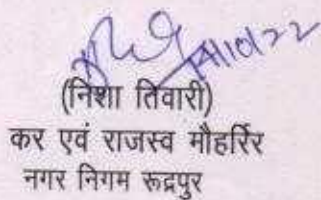 14/10/22
(निशा तिवारी)
कर एवं राजस्व मौहर्रिर
नगर निगम रूद्रपुर